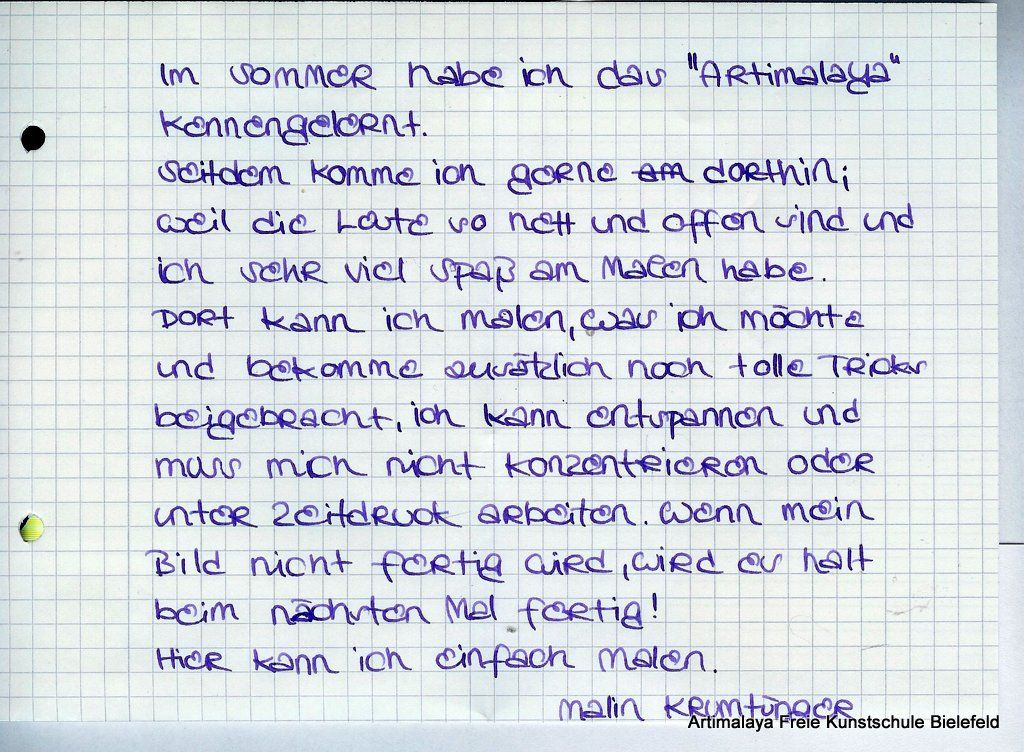 Im Sommer habe ich das "Artimalaya"
kennengelernt.
Seitdem komme ich gerne dorthin;
weil die Leute so nett und offen sind und
ich sehr viel Spaß am Malen habe.
Dort kann ich malen, was ich möchte
und bekomme zusätzlich noch tolle Tricks
beigebracht, ich kann entspannen und
muss mich nicht konzentrieren oder
unter Zeitdruck arbeiten. Wenn mein
Bild nicht fertig wird, wird es halt
beim nächsten Mal fertig!
Hier kann ich einfach malen.
Malin
Artimalaya Freie Kunstschule Bielefeld